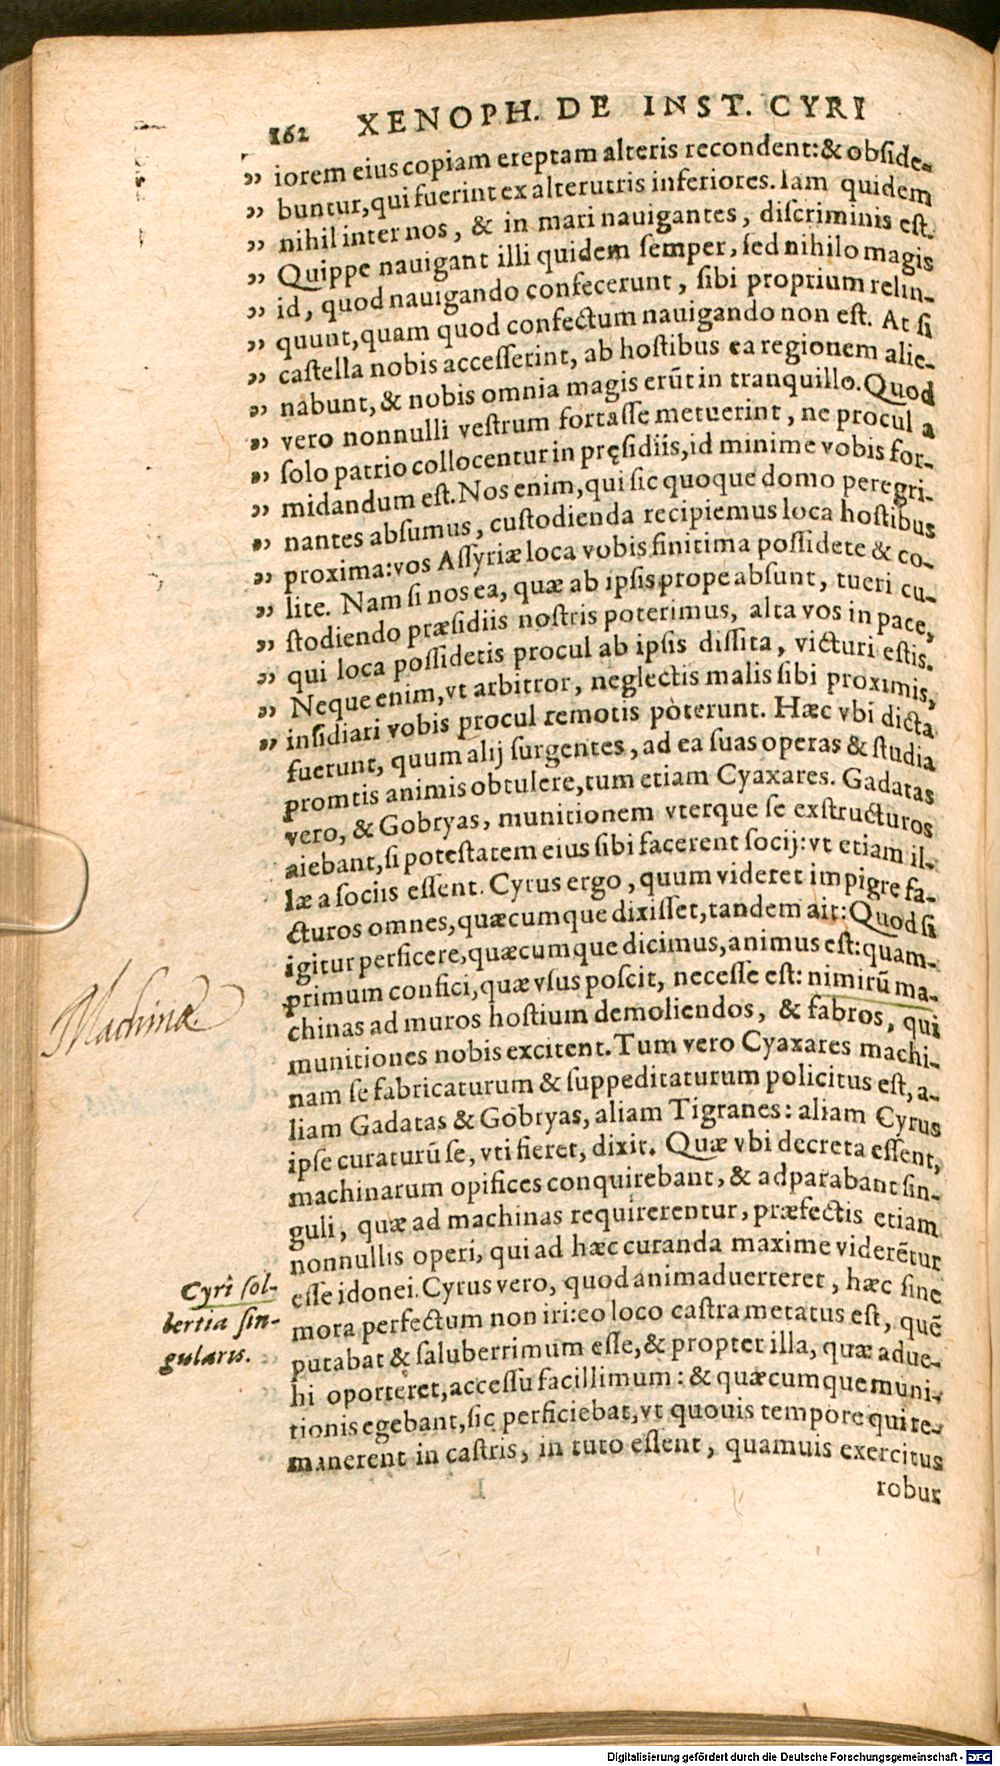 162 XENOPH. DE INST. CYRI
„ iorem eius copiam ereptam alteris recondent: & obside-
„ buntur, qui fuerint ex alterutris inferiores. Iam quidem
„ nihil inter nos, & in mari nauigantes, discriminis est.
„ Quippe nauigant illi quidem semper, sed nihilo magis
„ id, quod nauigando confecerunt, sibi proprium relin-
„ quunt, quam quod confectum nauigando non est. At si
„ castella nobis accesserint, ab hostibus ea regionem alie-
„ nabunt, & nobis omnia magis erūt in tranquillo. Quod
„ vero nonnulli vestrum fortasse metuerint, ne procul a
„ solo patrio collocentur in pręsidiis, id minime vobis for-
„ midandum est. Nos enim, qui sic quoque domo peregri-
„ nantes absumus, custodienda recipiemus loca hostibus
„ proxima: vos Assyriæ loca vobis finitima possidete & co-
„ lite. Nam si nos ea, quæ ab ipsis prope absunt, tueri cu-
„ stodiendo præsidiis nostris poterimus, alta vos in pace,
„ qui loca possidetis procul ab ipsis dissita, victuri estis.
„ Neque enim, vt arbitror, neglectis malis sibi proximis,
„ insidiari vobis procul remotis poterunt. Hæc vbi dicta
fuerunt, quum alij surgentes, ad ea suas operas & studia
promtis animis obtulere, tum etiam Cyaxares. Gadatas
vero, & Gobryas, munitionem vterque se exstructuros
aiebant, si potestatem eius sibi facerent socij: vt etiam il-
læ a sociis essent. Cyrus ergo, quum videret impigre fa-
cturos omnes, quæcumque dixisset, tandem ait: Quod si
igitur perficere, quæcumque dicimus, animus est: quam-
primum confici, quæ vsus poscit, necesse est: nimirū ma-
chinas ad muros hostium demoliendos, & fabros, qui
munitiones nobis excitent. Tum vero Cyaxares machi-
nam se fabricaturum & suppeditaturum policitus est, a-
liam Gadatas & Gobryas, aliam Tigranes: aliam Cyrus
ipse curaturū se, vti fieret, dixit. Quæ vbi decreta essent,
machinarum opifices conquirebant, & adparabant sin-
guli, quæ ad machinas requirerentur, præfectis etiam
nonnullis operi, qui ad hæc curanda maxime viderētur
esse idonei. Cyrus vero, quod animaduerteret, hæc sine
mora perfectum non iri: eo loco castra metatus est, quē
putabat & saluberrimum esse, & propter illa, quæ adue-
hi oporteret, accessu facillimum: & quæcumque muni-
tionis egebant, sic perficiebat, vt quouis tempore qui re-
manerent in castris, in tuto essent, quamuis exercitus
robur
Machinæ
Cyri sol-
lertia sin-
gularis.
Digitalisierung gefördert durch die Deutsche Forschungsgemeinschaft - DFG